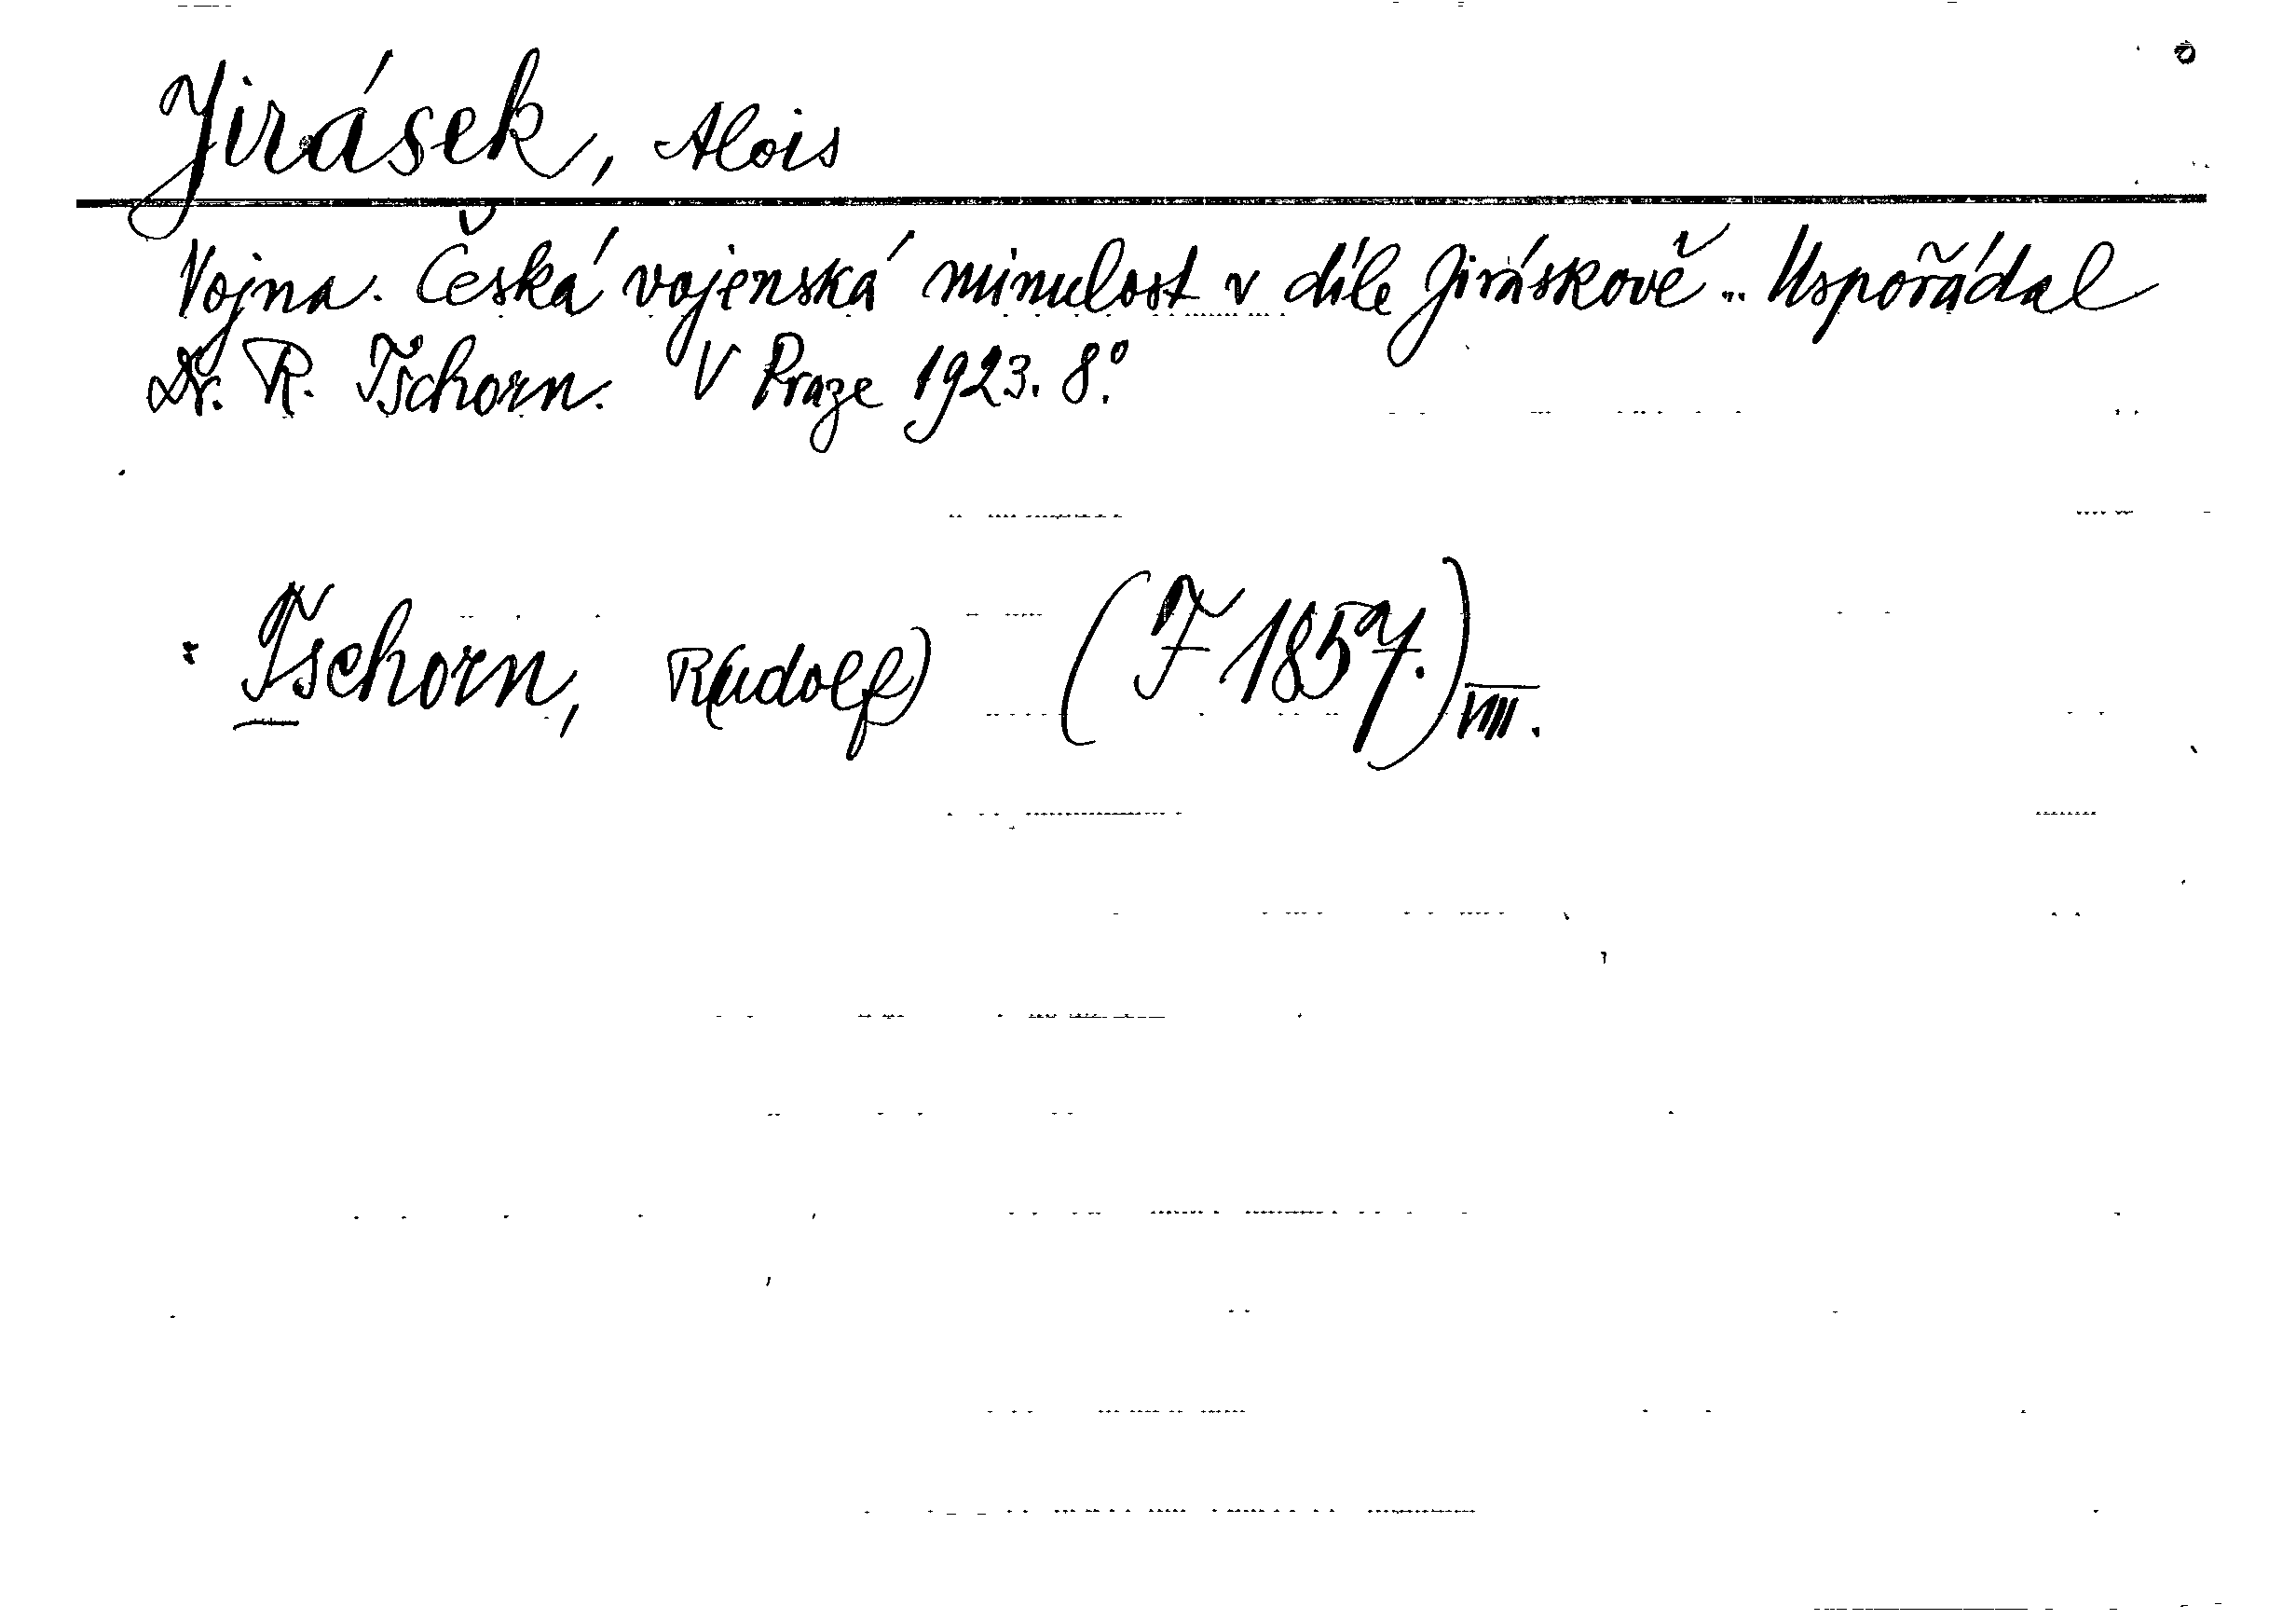 Jirásek, Alois
Vojna. Česká vojenská minulost v díle Jiráskově... Uspořádal
Dr. R. Tschorn. V Praze 1923. 8°.
Tschorn, R(udolf) (F 1857.) VIII.